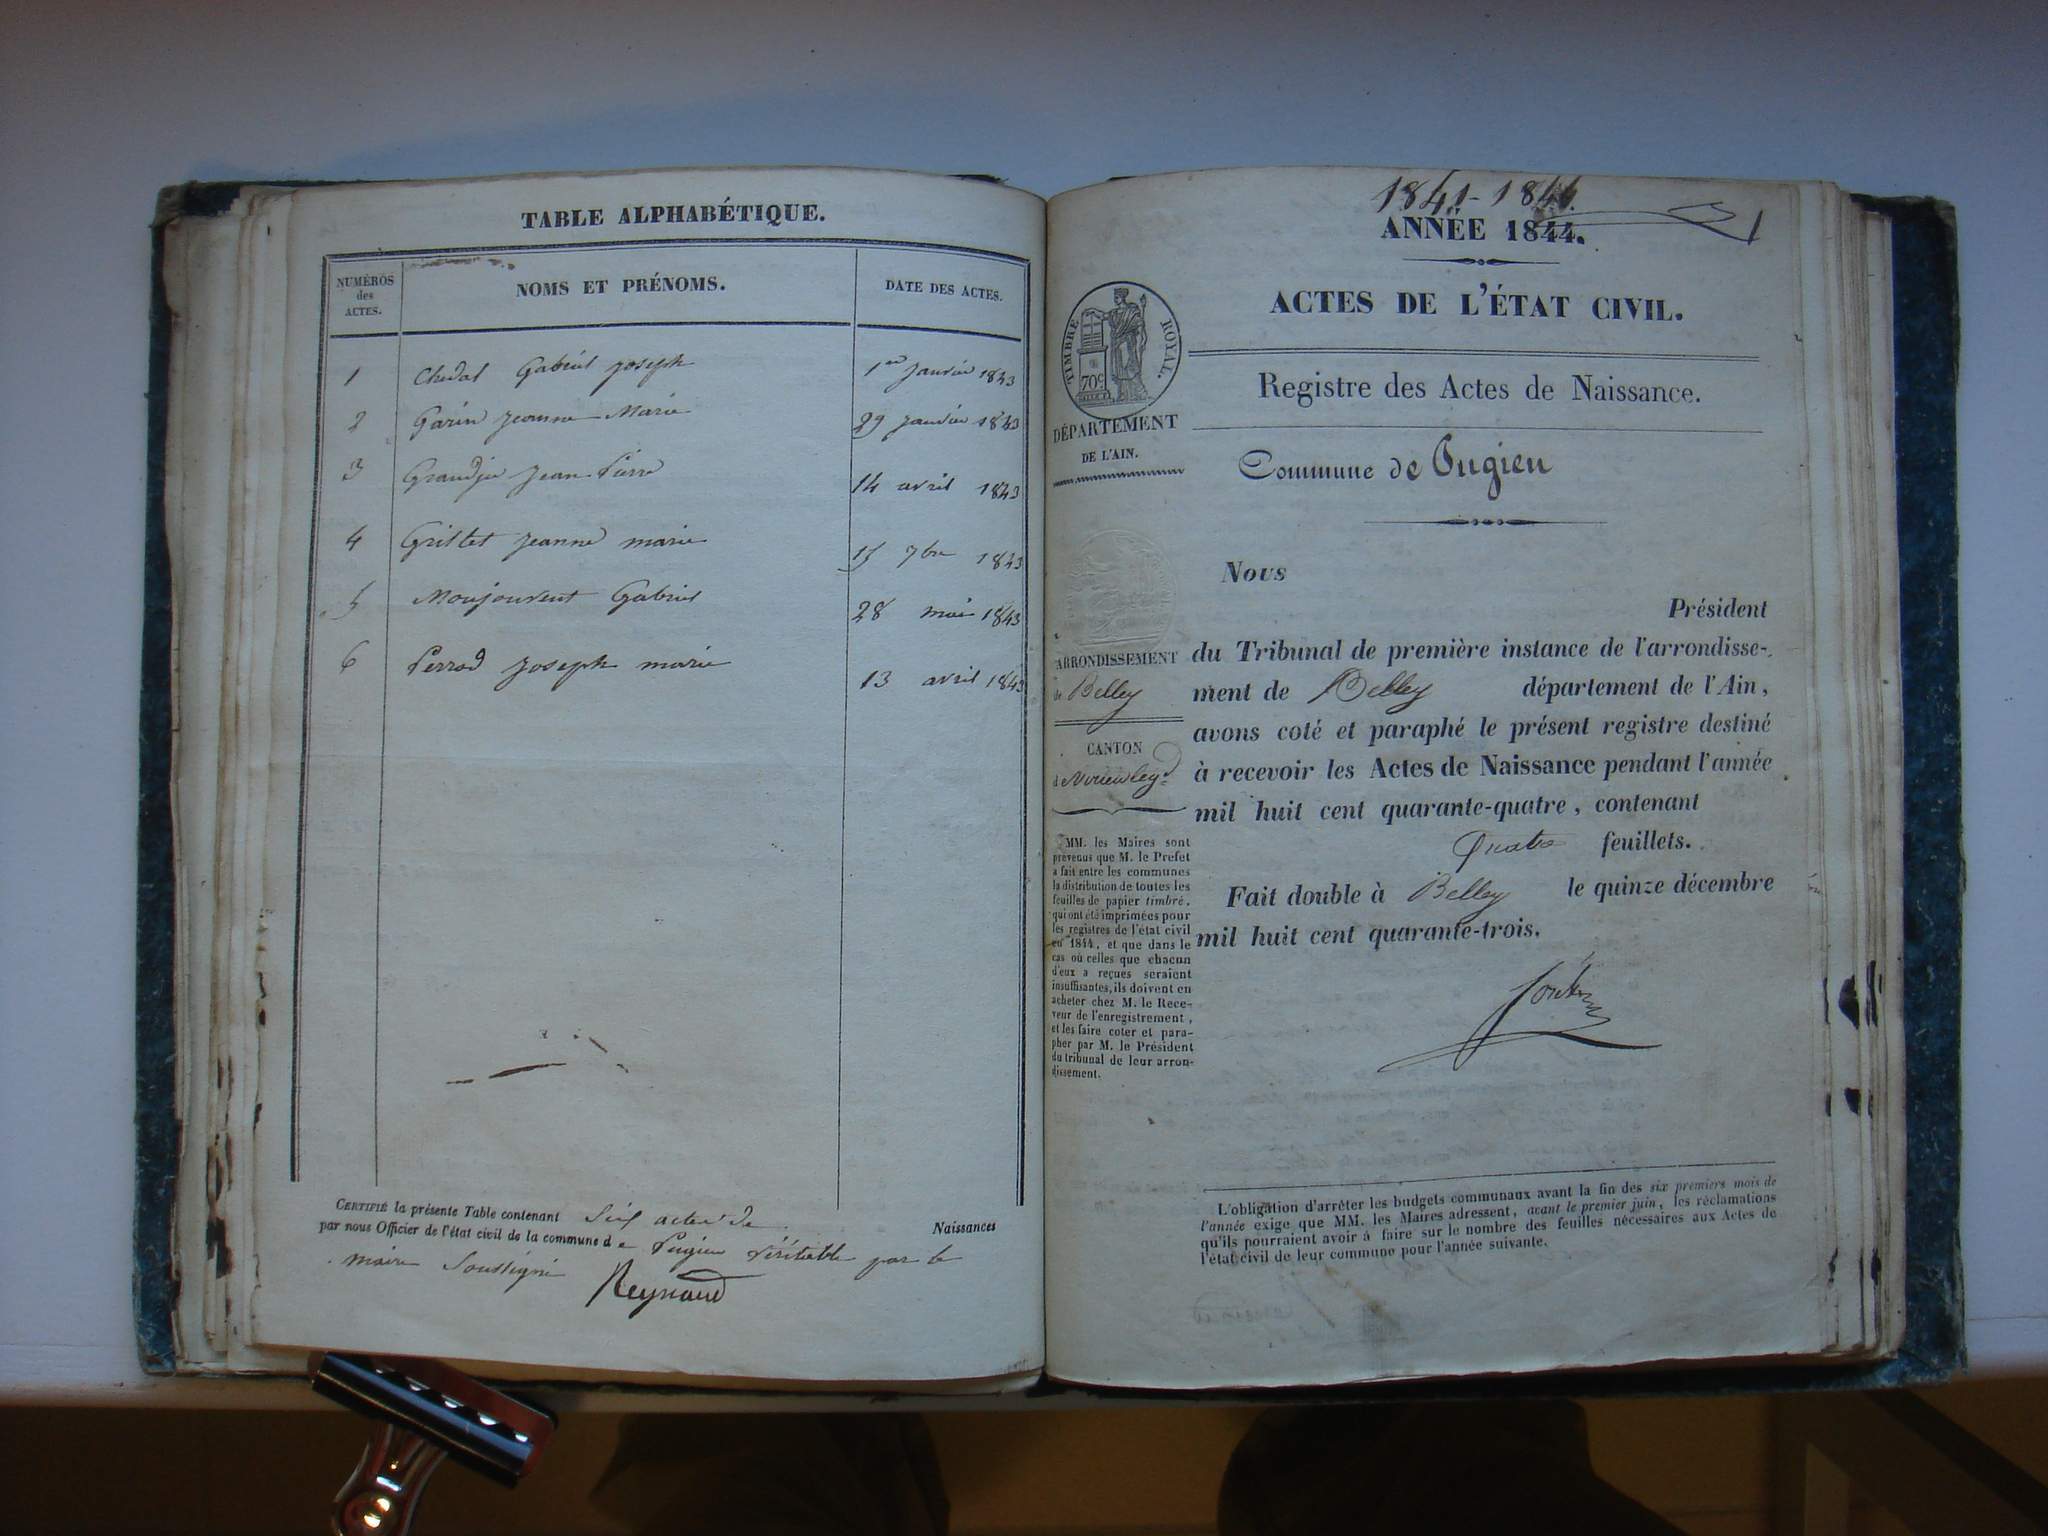 TABLE ALPHABÉTIQUE.
NUMÉROS des ACTES. NOMS ET PRÉNOMS. DATE DES ACTES.
1 Chedal Gabriel Joseph 1er Janvier 1843
2 Garin Jeanne Marie 29 Janvier 1843
3 Grandjie Jean Pierre 14 avril 1843
4 Grillet Jeanne marie 15 7bre 1843
5 Monjouvent Gabriel 28 mai 1843
6 Perrod Joseph marie 13 avril 1843
CERTIFIÉ la présente Table contenant Six actes de Naissances
par nous Officier de l'état civil de la commune de Pugieu Véritable par le
maire Soussigné
Reynaud
1841-1844
1
ANNÉE 1844.
ACTES DE L'ÉTAT CIVIL.
TIMBRE ROYAL.
70c
Registre des Actes de Naissance.
DÉPARTEMENT
DE L'AIN.
Commune de Pugieu
Nous
Président
du Tribunal de première instance de l'arrondisse-
ment de Belley département de l'Ain,
avons coté et paraphé le présent registre destiné
à recevoir les Actes de Naissance pendant l'année
mil huit cent quarante-quatre, contenant
Quatre feuillets.
Fait double à Belley le quinze décembre
mil huit cent quarante-trois.
ARRONDISSEMENT
de Belley
CANTON
de Virieu le gd
MM. les Maires sont
prévenus que M. le Préfet
a fait entre les communes
la distribution de toutes les
feuilles de papier timbré,
qui ont été imprimées pour
les registres de l'état civil
en 1844, et que dans le
cas où celles que chacun
d'eux a reçues seraient
insuffisantes, ils doivent en
acheter chez M. le Rece-
veur de l'enregistrement,
et les faire coter et para-
pher par M. le Président
du tribunal de leur arron-
dissement.
L'obligation d'arrêter les budgets communaux avant la fin des six premiers mois de
l'année exige que MM. les Maires adressent, avant le premier juin, les réclamations
qu'ils pourraient avoir à faire sur le nombre des feuilles nécessaires aux Actes de
l'état civil de leur commune pour l'année suivante.